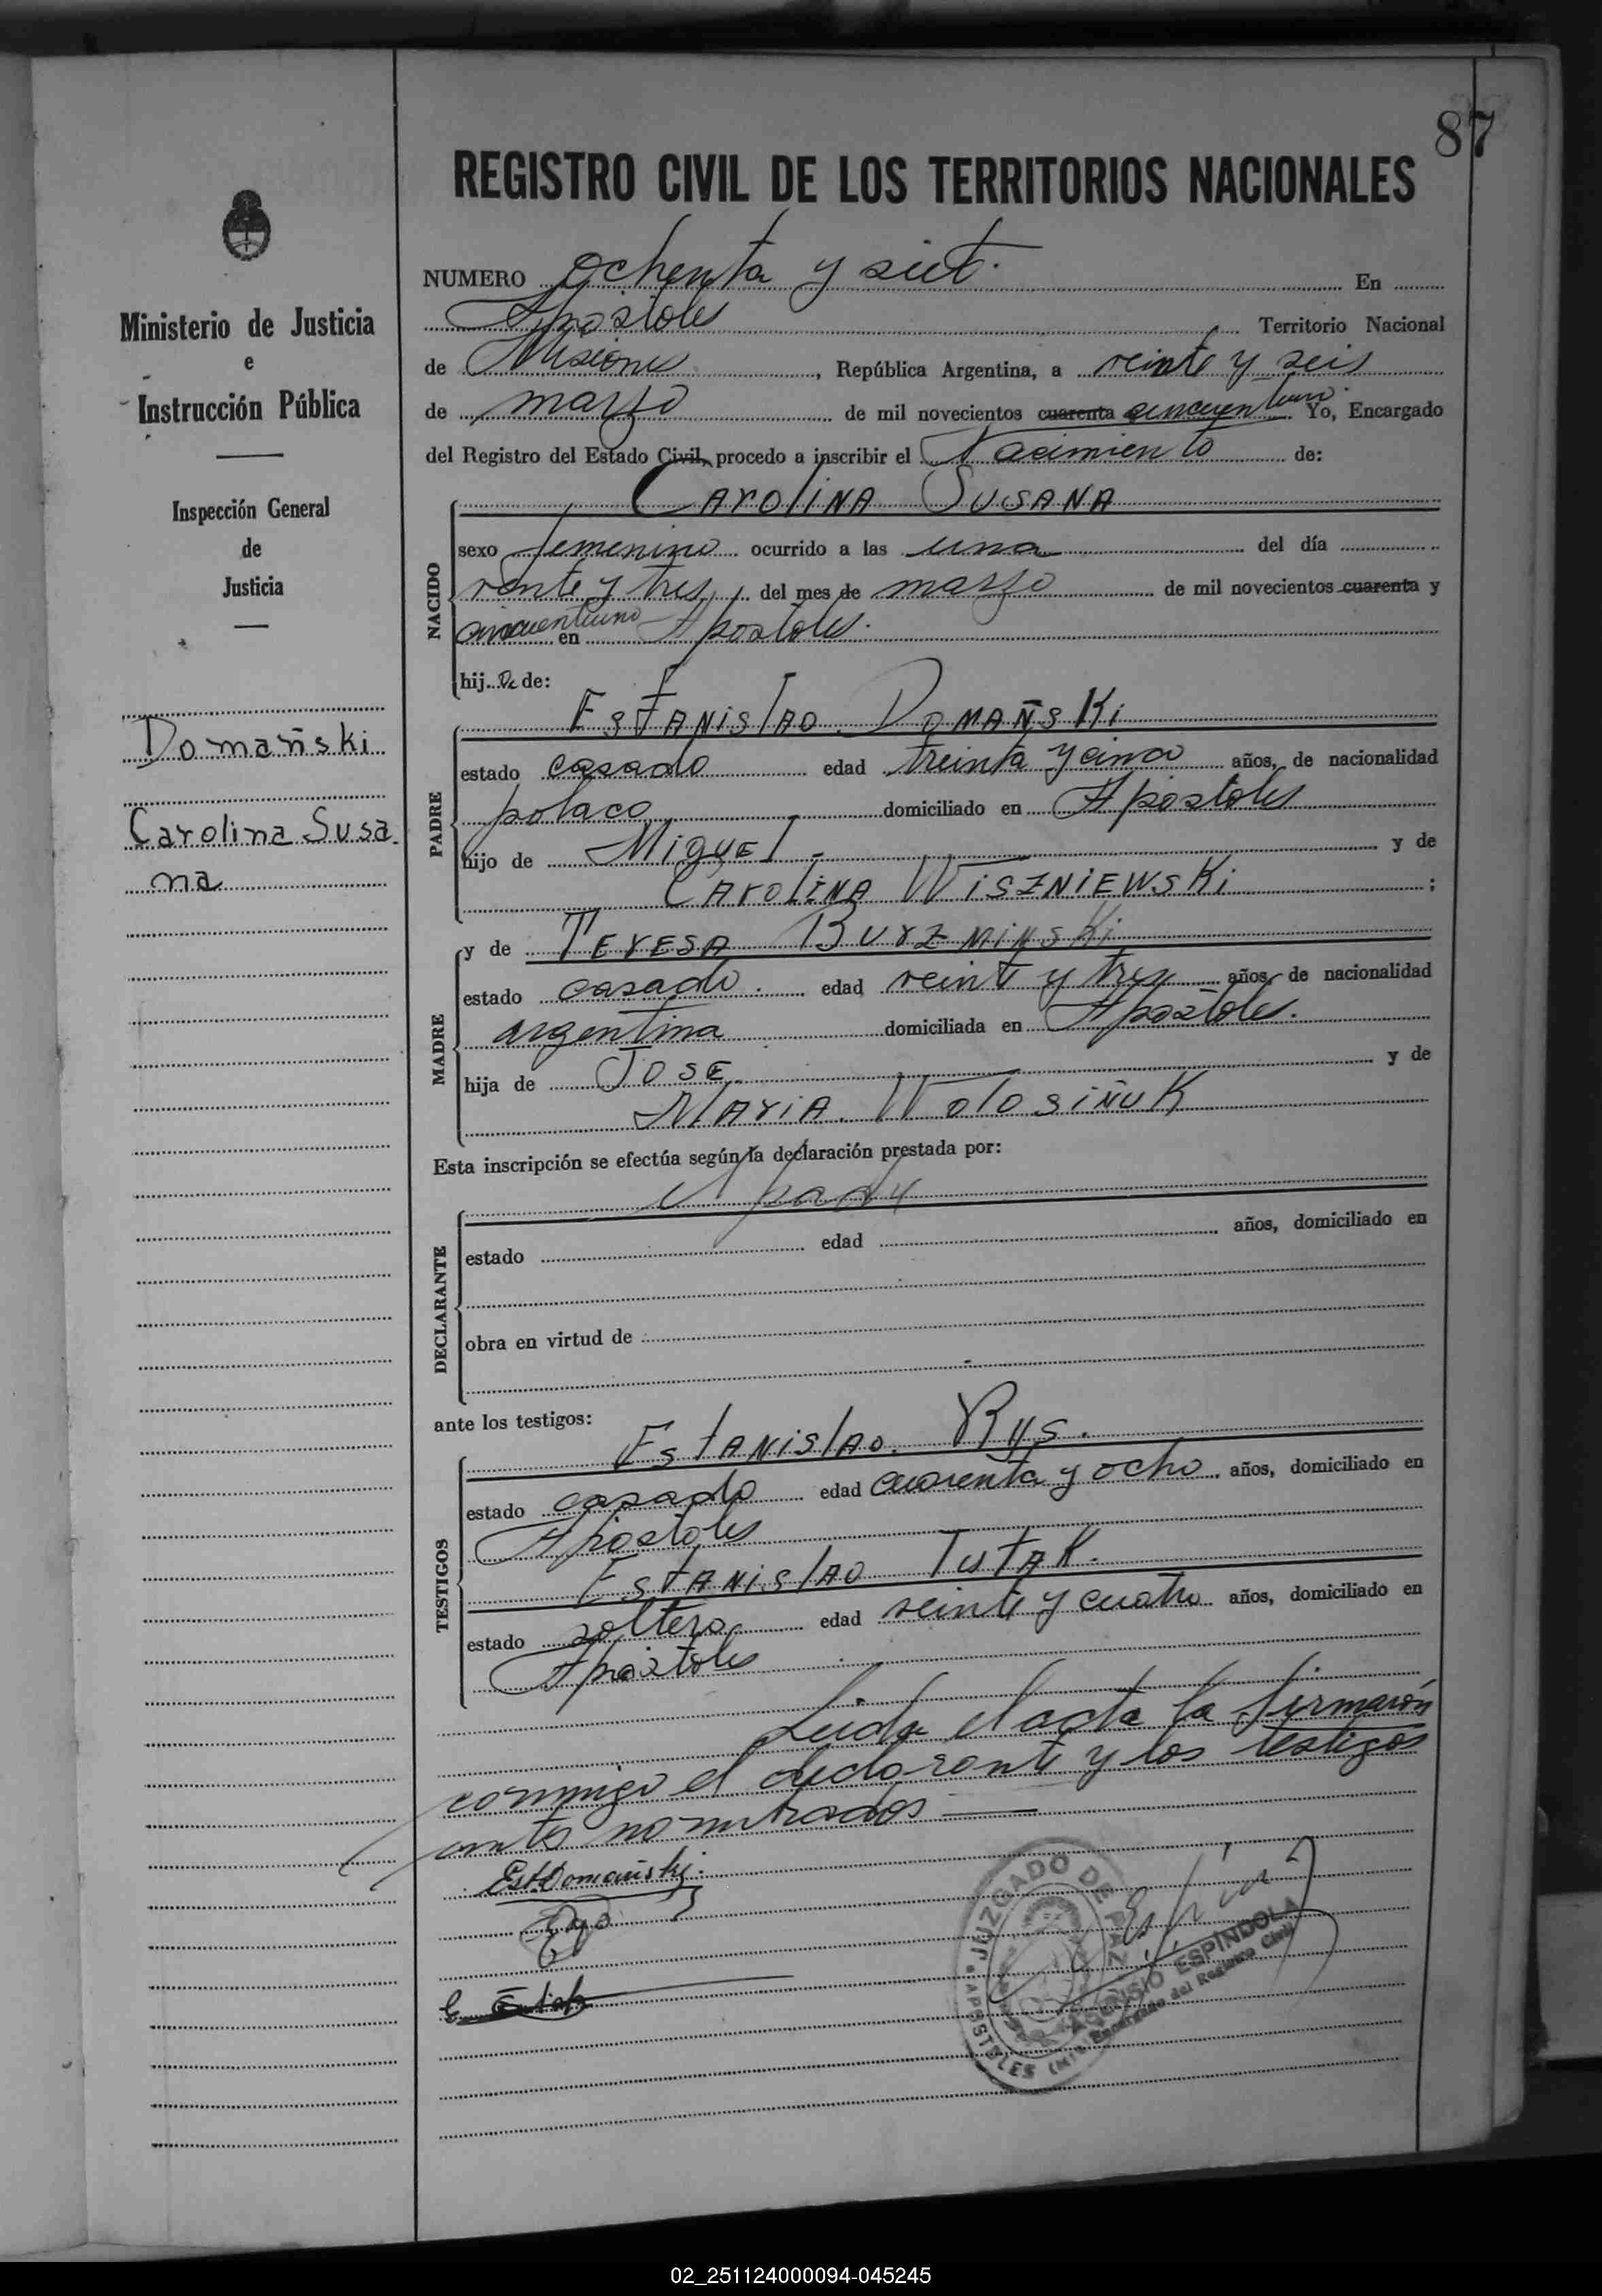 87
REGISTRO CIVIL DE LOS TERRITORIOS NACIONALES
NUMERO ochenta y siete. En
Apostoles Territorio Nacional
de Misiones, República Argentina, a veinte y seis
de marzo de mil novecientos cuarenta cincuentiuno. Yo, Encargado
del Registro del Estado Civil, procedo a inscribir el Nacimiento de:
Ministerio de Justicia
e
Instrucción Pública
Inspección General
de
Justicia
Domañski
Carolina Susa
na
NACIDO
CArOliNA SUSANA
sexo femenino ocurrido a las una del día
veinte y tres del mes de marzo de mil novecientos cuarenta y
cincuentiuno en Apostoles.
hij a de:
PADRE
EsTANislAO DOMAÑsKi
estado casado edad treinta y cinco años, de nacionalidad
polaco domiciliado en Apostoles
hijo de MigUEl y de
CArOliNA WiSZNiEWsKi ;
MADRE
y de TErESA BUrZMiNSKi
estado casado. edad veinte y tres años, de nacionalidad
argentina domiciliada en Apostoles.
hija de JOSE y de
MAriA WOlOSiÑUK
Esta inscripción se efectúa según la declaración prestada por:
el padre
DECLARANTE
estado edad años, domiciliado en
obra en virtud de
ante los testigos:
TESTIGOS
EsTANislAO RYS.
estado casado edad cuarenta y ocho años, domiciliado en
Apostoles
EsTANislAO
estado soltero edad veinte y cuatro años, domiciliado en
Apostoles
Leida el acta la firmarón
conmigo el declarante y los testigos
antes nombrados
Est Domański
JUZGADO DE PAZ
APOSTOLES
ESPINDOLA
Encargado del Registro Civil
02_251124000094-045245